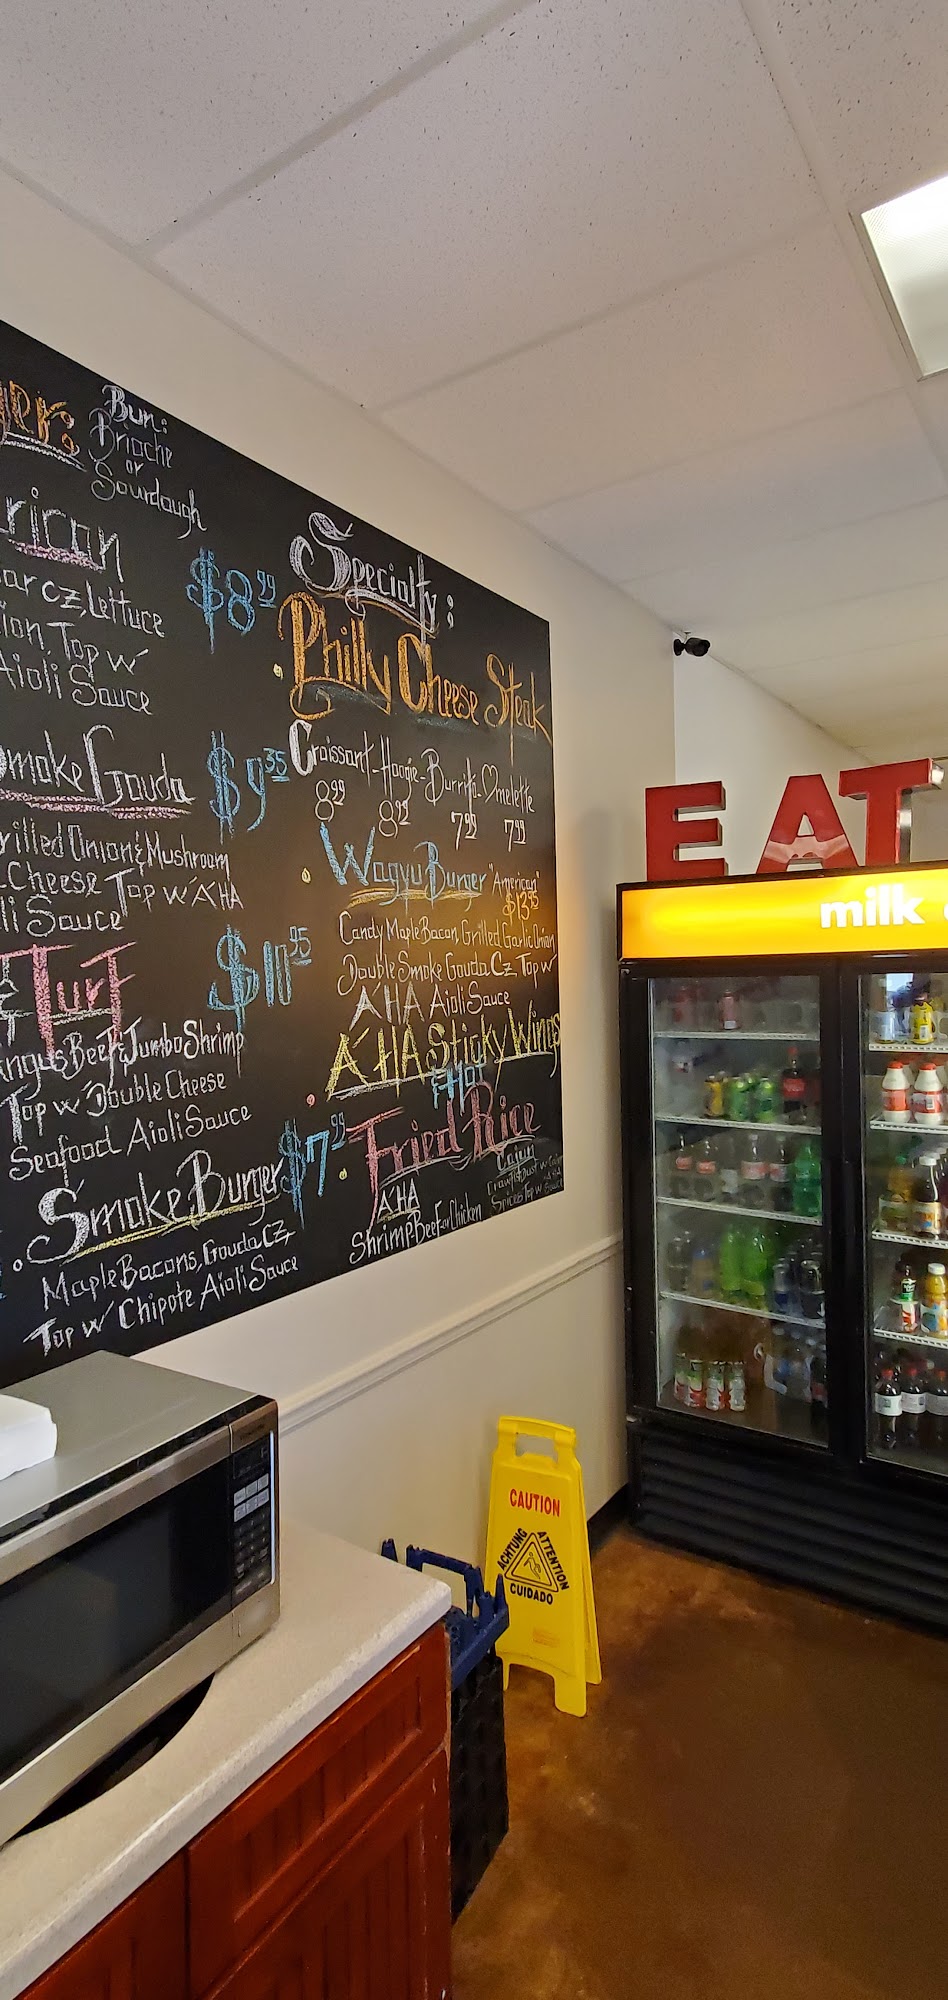 Bun:
Brioche
or
Sourdough
$8.99
Lettuce
Top w/
Aioli Sauce
Smoke Gouda
$9.35
Grilled Onion & Mushroom
Cheese Top w/ A'HA
Sauce
& Turf
$10.95
Angus Beef & Jumbo Shrimp
Top w/ Double Cheese
Seafood Aioli Sauce
Smoke Burger
$7.99
Maple Bacons, Gouda CZ,
Top w/ Chipote Aioli Sauce
Specialty:
Philly Cheese Steak
Croissant - Hoogie - Burrito - Omelette
8.99 8.92 7.99 7.99
Wagyu Burger "American"
$13.95
Candy Maple Bacon, Grilled Garlic Onion
Double Smoke Gouda CZ Top w/
A'HA Aioli Sauce
A'HA Sticky Wings
Hot
Fried Rice
A'HA
Shrimp-Beef or Chicken
Cajun
EAT
milk
CAUTION
ACHTUNG
ATTENTION
CUIDADO